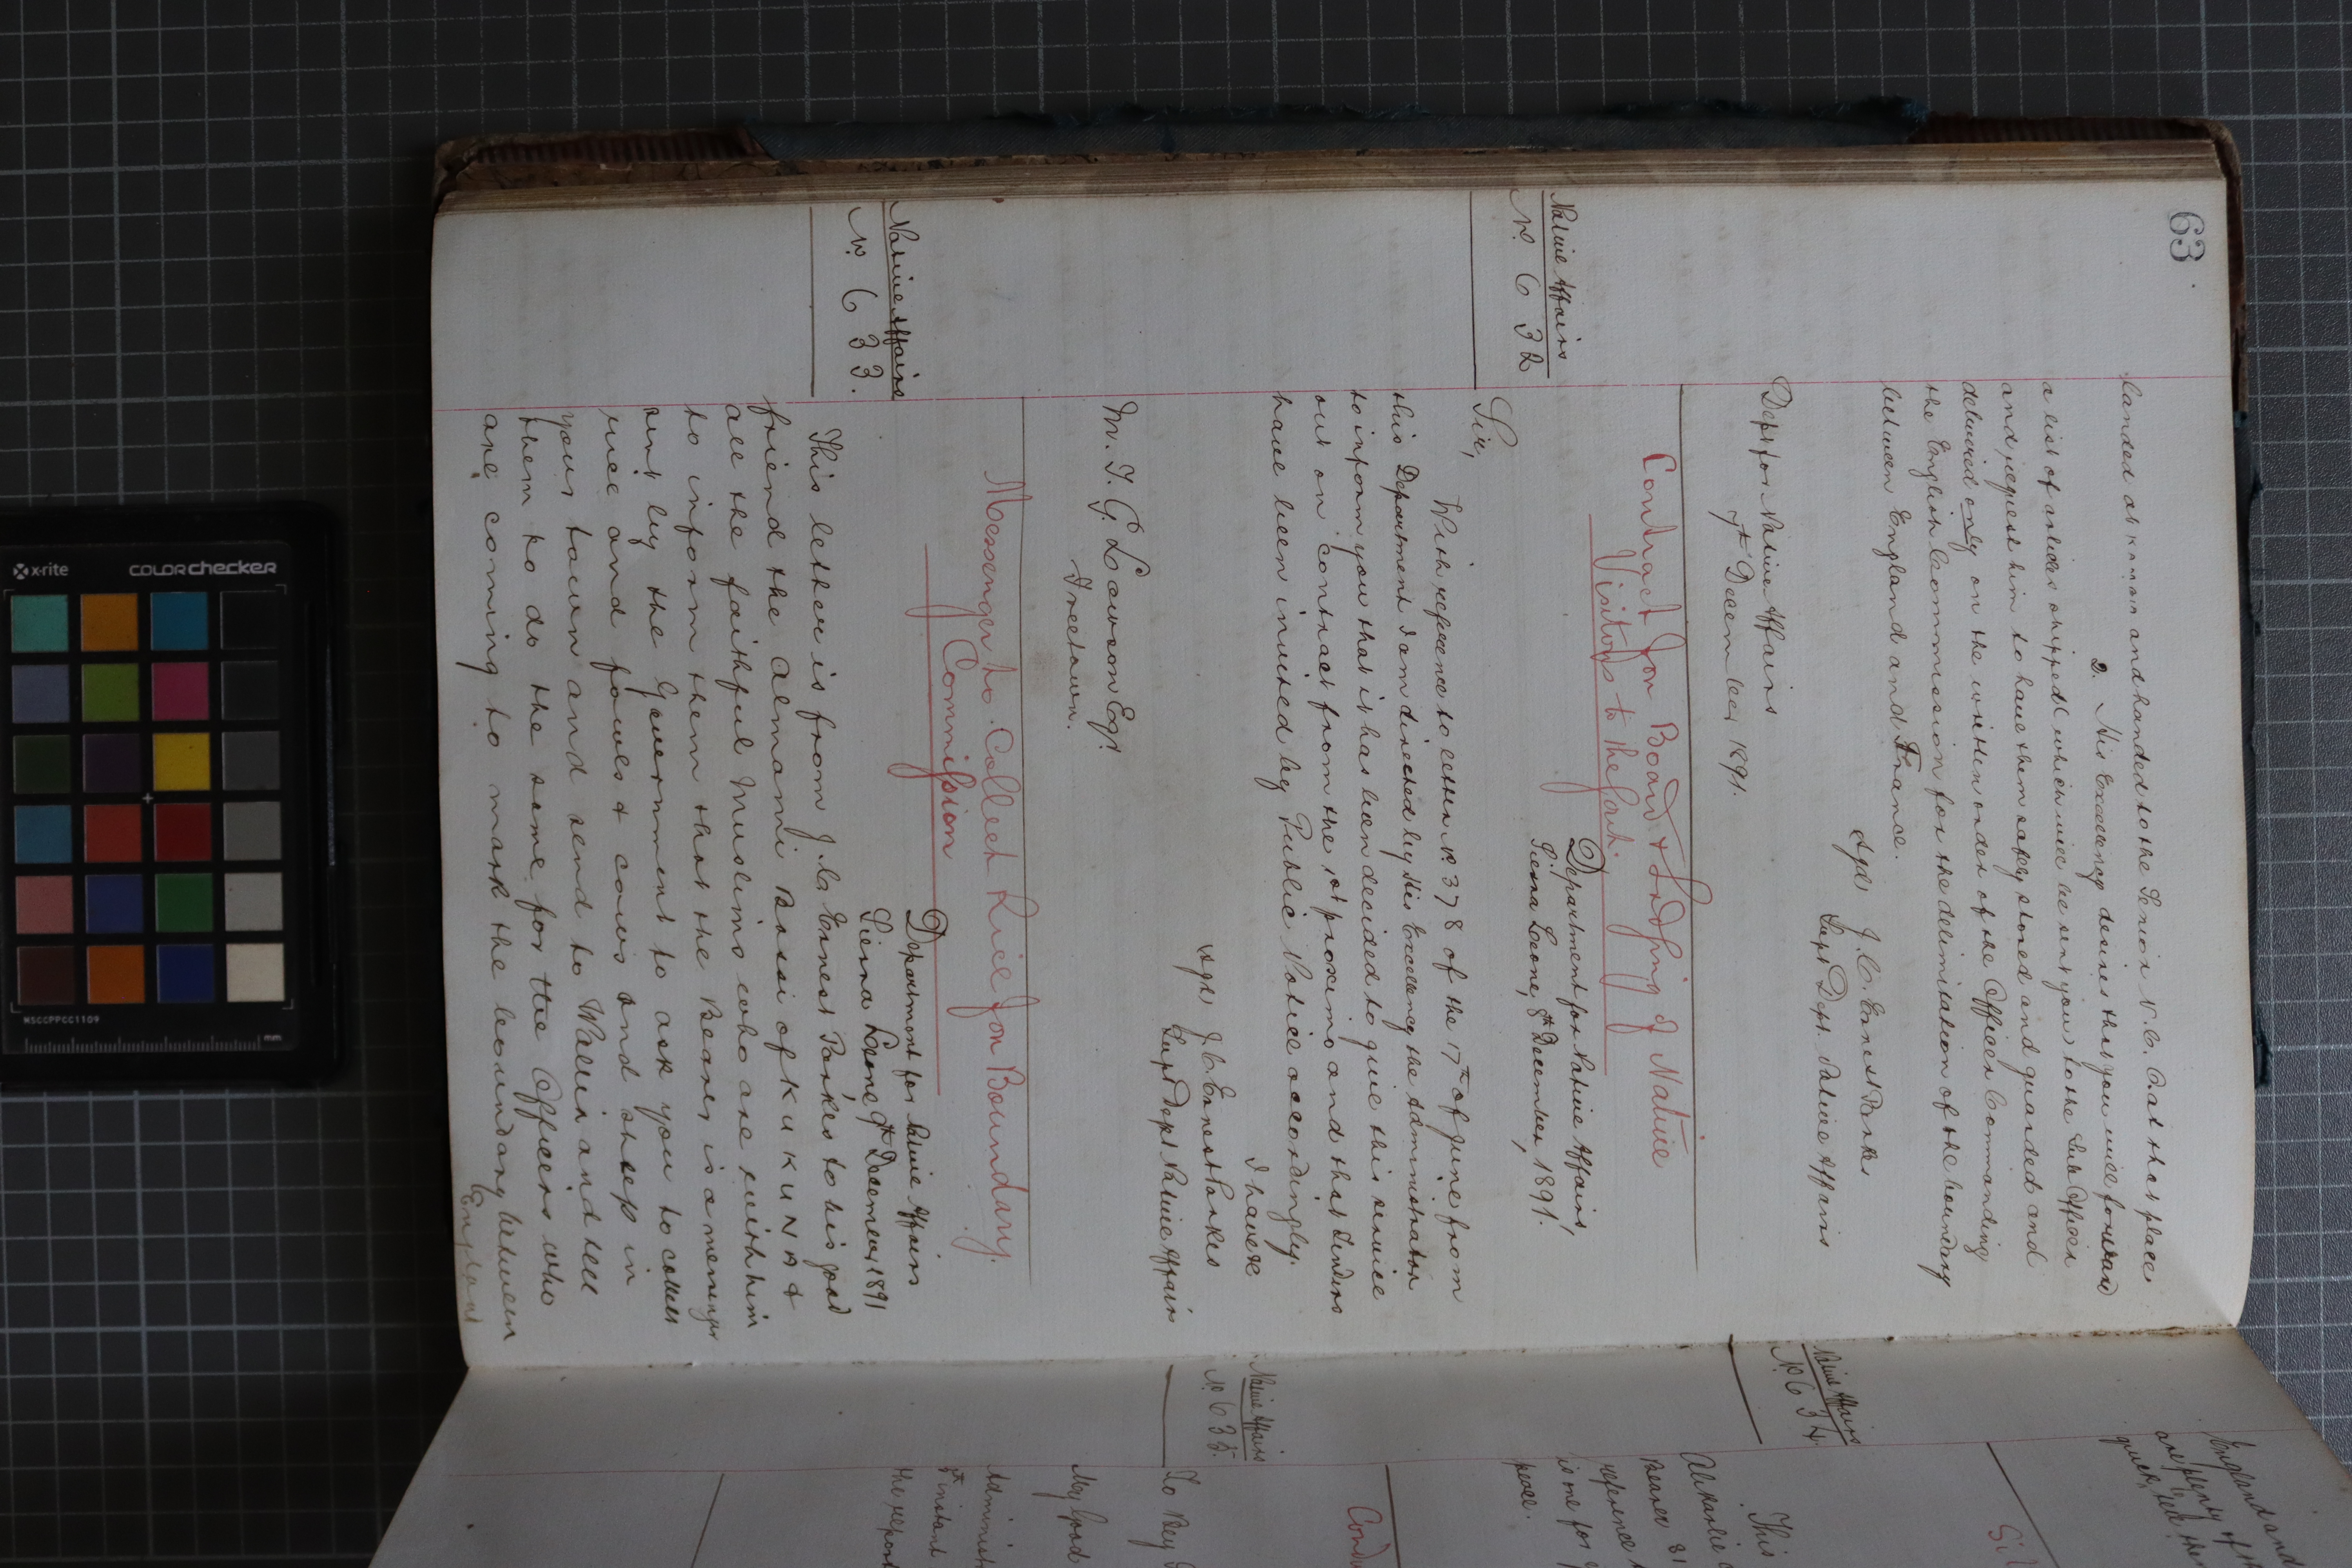 63
landed at Kambia and handed to the Senior N.C.O. at that place
2. His Excellency desires that you will forward
a list of articles shipped which will be sent you to the Sub Officer
and request him to have them safely stored and guarded and
delivered only on the written order of the Officer Commanding
the English Commission for the delimitation of the boundary
between England and France.
Sgd J. C. Ernest Parkes
Supt Dept. Native Affairs
Dept for Native Affairs
7th December 1891.
Contract for Board & Lodging of Native
Visitors to the Govt.
Native Affairs
No. 632
Department for Native Affairs
Sierra Leone, 8th December, 1891.
Sir,
With reference to letter No. 378 of the 17th of June from
this Department I am directed by His Excellency the Administrator
to inform you that it has been decided to give this service
out on contract from the 1st proximo and that tenders
have been invited by Public Notice accordingly.
I have &c
Sgd J. C. Ernest Parkes
Supt Dept Native Affairs
M. T. G. Lawson Esq.
Freetown.
Messenger to Collect Rice for Boundary
Commission
Native Affairs
No. 633.
Department for Native Affairs
Sierra Leone 9th December 1891
This letter is from J. C. Ernest Parkes to his good
friend the Almami Bassi of KUKUNA &
all the faithful Muslims who are with him
to inform them that the Bearer is a messenger
sent by the Government to ask you to collect
rice and fowls & cows and sheep in
your town and send to Wallia and tell
them to do the same for the Officers who
are coming to mark the boundary between
England
England and
are plenty of
Native Affairs
No. 634.
This
Bearer
reference
is me for
peace.
Native Affairs
No. 635.
To Bey
My Good
Administ
instant
the report
x-rite
colorchecker
MSCCPPCC1109
mm